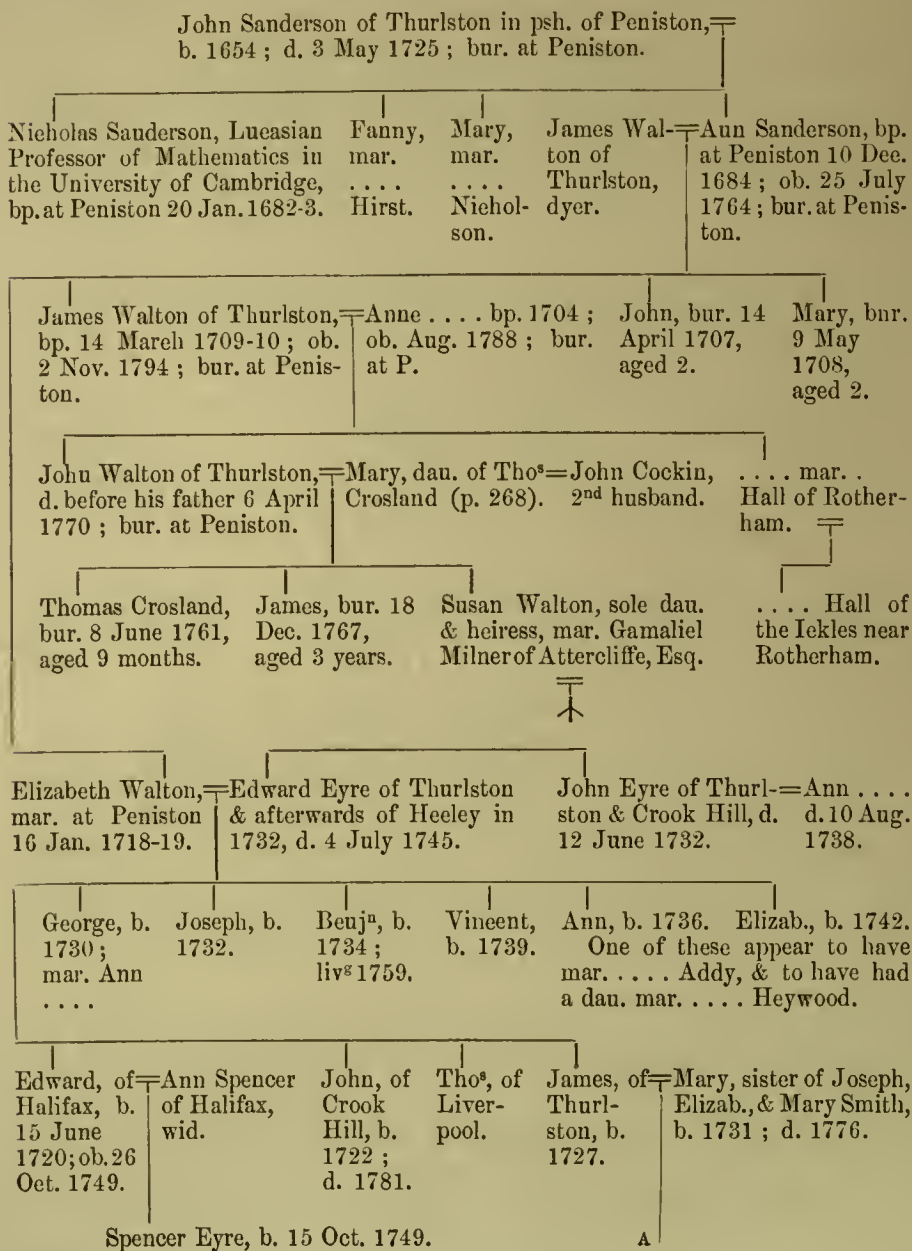 John Sanderson of Thurlston in psh. of Peniston,
b. 1654 ; d. 3 May 1725 ; bur. at Peniston.
Nicholas Saunderson, Lucasian
Professor of Mathematics in
the University of Cambridge,
bp. at Peniston 20 Jan. 1682-3.
Fanny,
mar.
. . . .
Hirst.
Mary,
mar.
. . . .
Nichol-
son.
James Wal-
ton of
Thurlston,
dyer.
Ann Sanderson, bp.
at Peniston 10 Dec.
1684 ; ob. 25 July
1764 ; bur. at Penis-
ton.
James Walton of Thurlston,
bp. 14 March 1709-10 ; ob.
2 Nov. 1794 ; bur. at Penis-
ton.
Anne . . . . bp. 1704 ;
ob. Aug. 1788 ; bur.
at P.
John, bur. 14
April 1707,
aged 2.
Mary, bur.
9 May
1708,
aged 2.
John Walton of Thurlston,
d. before his father 6 April
1770 ; bur. at Peniston.
Mary, dau. of Thoˢ
Crosland (p. 268).
John Cockin,
2ⁿᵈ husband.
. . . . mar. .
Hall of Rother-
ham.
Thomas Crosland,
bur. 8 June 1761,
aged 9 months.
James, bur. 18
Dec. 1767,
aged 3 years.
Susan Walton, sole dau.
& heiress, mar. Gamaliel
Milner of Attercliffe, Esq.
. . . . Hall of
the Ickles near
Rotherham.
Elizabeth Walton,
mar. at Peniston
16 Jan. 1718-19.
Edward Eyre of Thurlston
& afterwards of Heeley in
1732, d. 4 July 1745.
John Eyre of Thurl-
ston & Crook Hill, d.
12 June 1732.
Ann . . . .
d. 10 Aug.
1738.
George, b.
1730 ;
mar. Ann
. . . .
Joseph, b.
1732.
Benjⁿ, b.
1734 ;
livᵍ 1759.
Vincent,
b. 1739.
Ann, b. 1736. Elizab., b. 1742.
One of these appear to have
mar. . . . . Addy, & to have had
a dau. mar. . . . . Heywood.
Edward, of
Halifax, b.
15 June
1720; ob. 26
Oct. 1749.
Ann Spencer
of Halifax,
wid.
John, of
Crook
Hill, b.
1722 ;
d. 1781.
Thoˢ, of
Liver-
pool.
James, of
Thurl-
ston, b.
1727.
Mary, sister of Joseph,
Elizab., & Mary Smith,
b. 1731 ; d. 1776.
Spencer Eyre, b. 15 Oct. 1749.
A